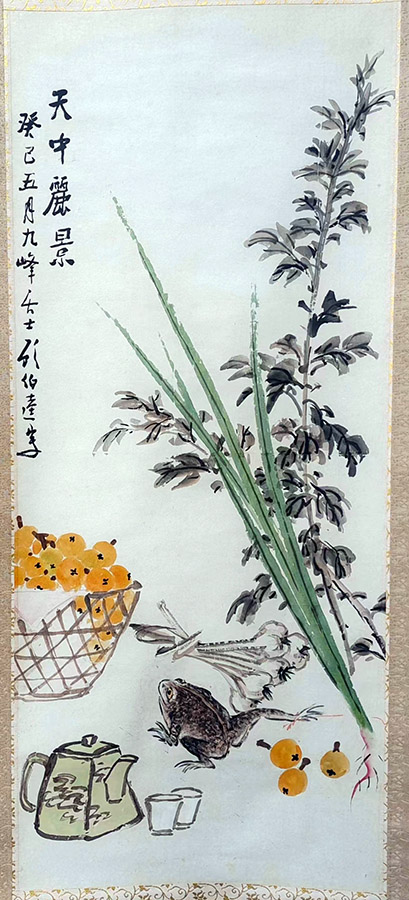 天中麗景
癸巳五月九峰居士顧伯逵寫